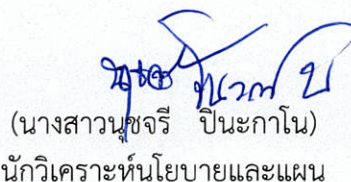 (นางสาวนุชจรี ปินะกาโน)
นักวิเคราะห์นโยบายและแผน